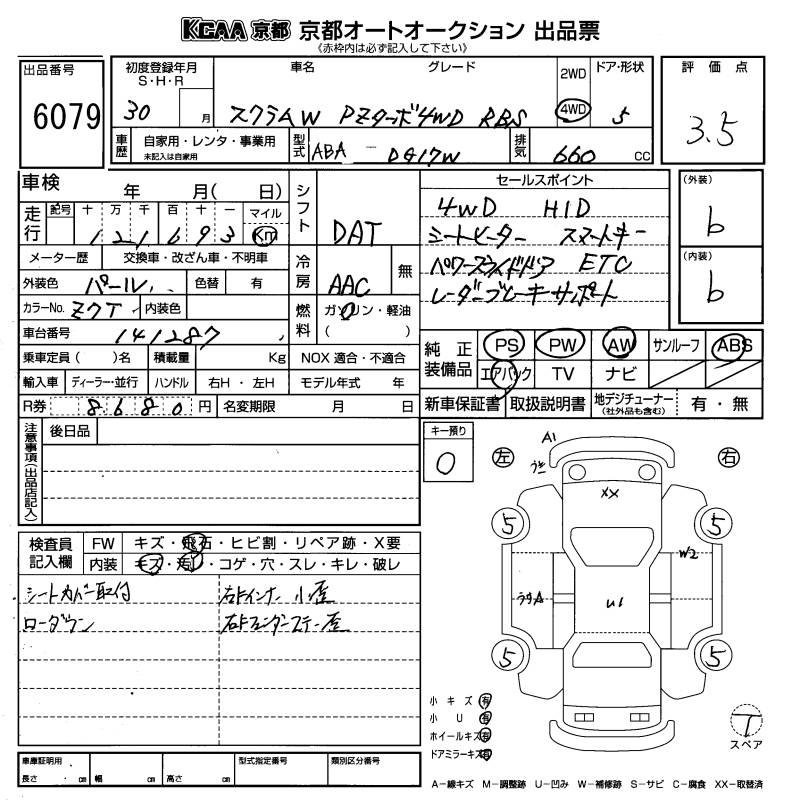 KCAA 京都 京都オートオークション 出品票
《赤枠内は必ず記入して下さい》
出品番号 6079
初度登録年月 S・H・R 30 月
車名 グレード
スクラムW PZターボ4WD RBS
2WD 4WD
ドア・形状 5
評価点 3.5
車歴 自家用・レンタ・事業用 未記入は自家用
型式 ABA - DG17W
排気 660 cc
車検 年 月( 日)
走行 記号 十 万 千 百 十 一 マイル Km
121693
メーター歴 交換車・改ざん車・不明車
外装色 パール 色替 有
カラーNo. Z7T 内装色
車台番号 141287
乗車定員( )名 積載量 Kg
輸入車 ディーラー・並行 ハンドル 右H・左H
R券 8680円 名変期限 月 日
シフト DAT
冷房 AAC 無
燃料 ガソリン・軽油 ( )
NOX 適合・不適合
モデル年式 年
セールスポイント
4WD HID
シートヒーター スマートキー
パワースライドドア ETC
レーダーブレーキサポート
(外装) b
(内装) b
純正装備品 PS PW AW サンルーフ ABS
エアバック TV ナビ
新車保証書 取扱説明書 地デジチューナー (社外品も含む) 有・無
注意事項(出品店記入) 後日品
キー預り 0
検査員記入欄 FW キズ・飛石・ヒビ割・リペア跡・X要
内装 キズ・汚れ・コゲ・穴・スレ・キレ・破レ
シートカバー取付
ローダウン
右Fインナー小歪
右Fフェンダーステー歪
左 右
A1
XX
5 5
W2
U1
5 5
小キズ 有
小U 有
ホイールキズ 有
ドアミラーキズ 有
T
スペア
車庫証明用 長さ . cm 幅 cm 高さ cm
型式指定番号 類別区分番号
A-線キズ M-調整跡 U-凹み W-補修跡 S-サビ C-腐食 XX-取替済